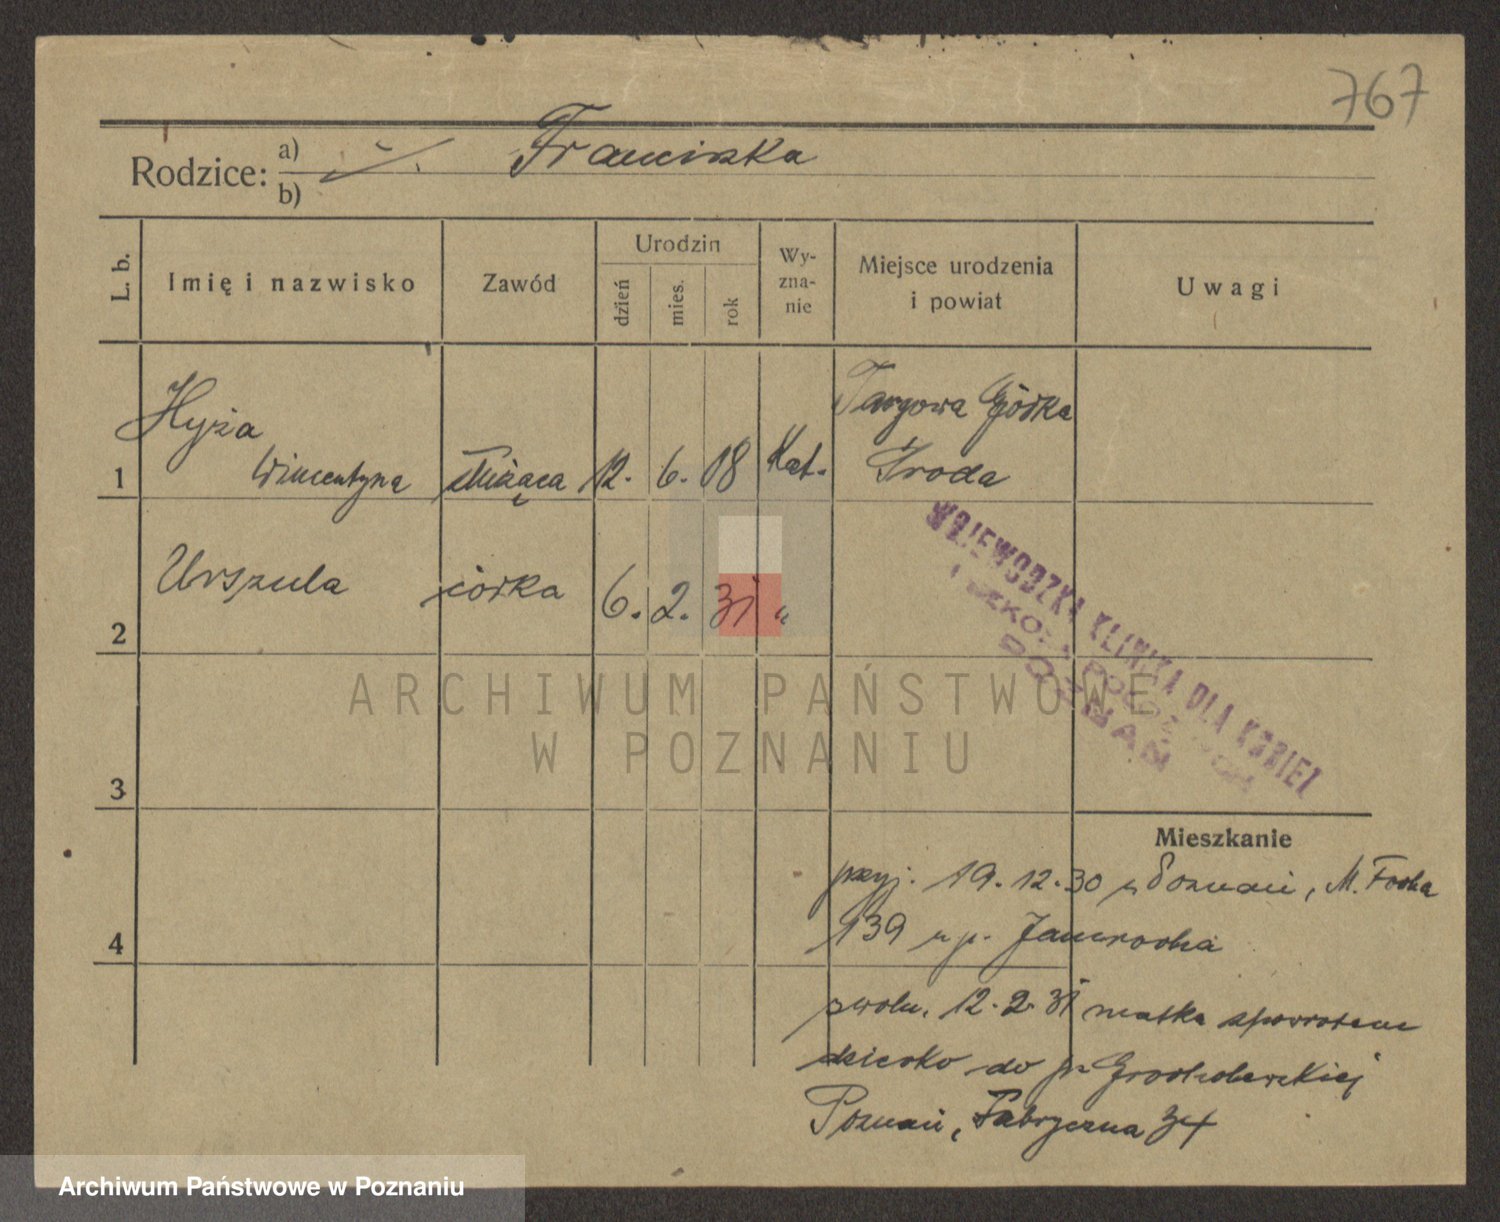 767
Rodzice: a) Franciszka
b)
L. b. Imię i nazwisko Zawód Urodzin dzień mies. rok Wy-zna-nie Miejsce urodzenia i powiat Uwagi
Hyża Targowa Górka
1 Wincentyna służąca 12. 6. 08 Kat. Środa
2 Urszula córka 6. 2. 31 "
WOJEWÓDZKA KLINIKA DLA KOBIET
POZNAŃ
ARCHIWUM PAŃSTWOWE
W POZNANIU
3
Mieszkanie
przyj. 19.12.30 z Poznań, M. Focha
4 139 u p. Jamrocha
zwoln. 12.2.31 matka spowrotem
dziecko do p. Grocholewskiej
Poznań, Fabryczna 34
Archiwum Państwowe w Poznaniu